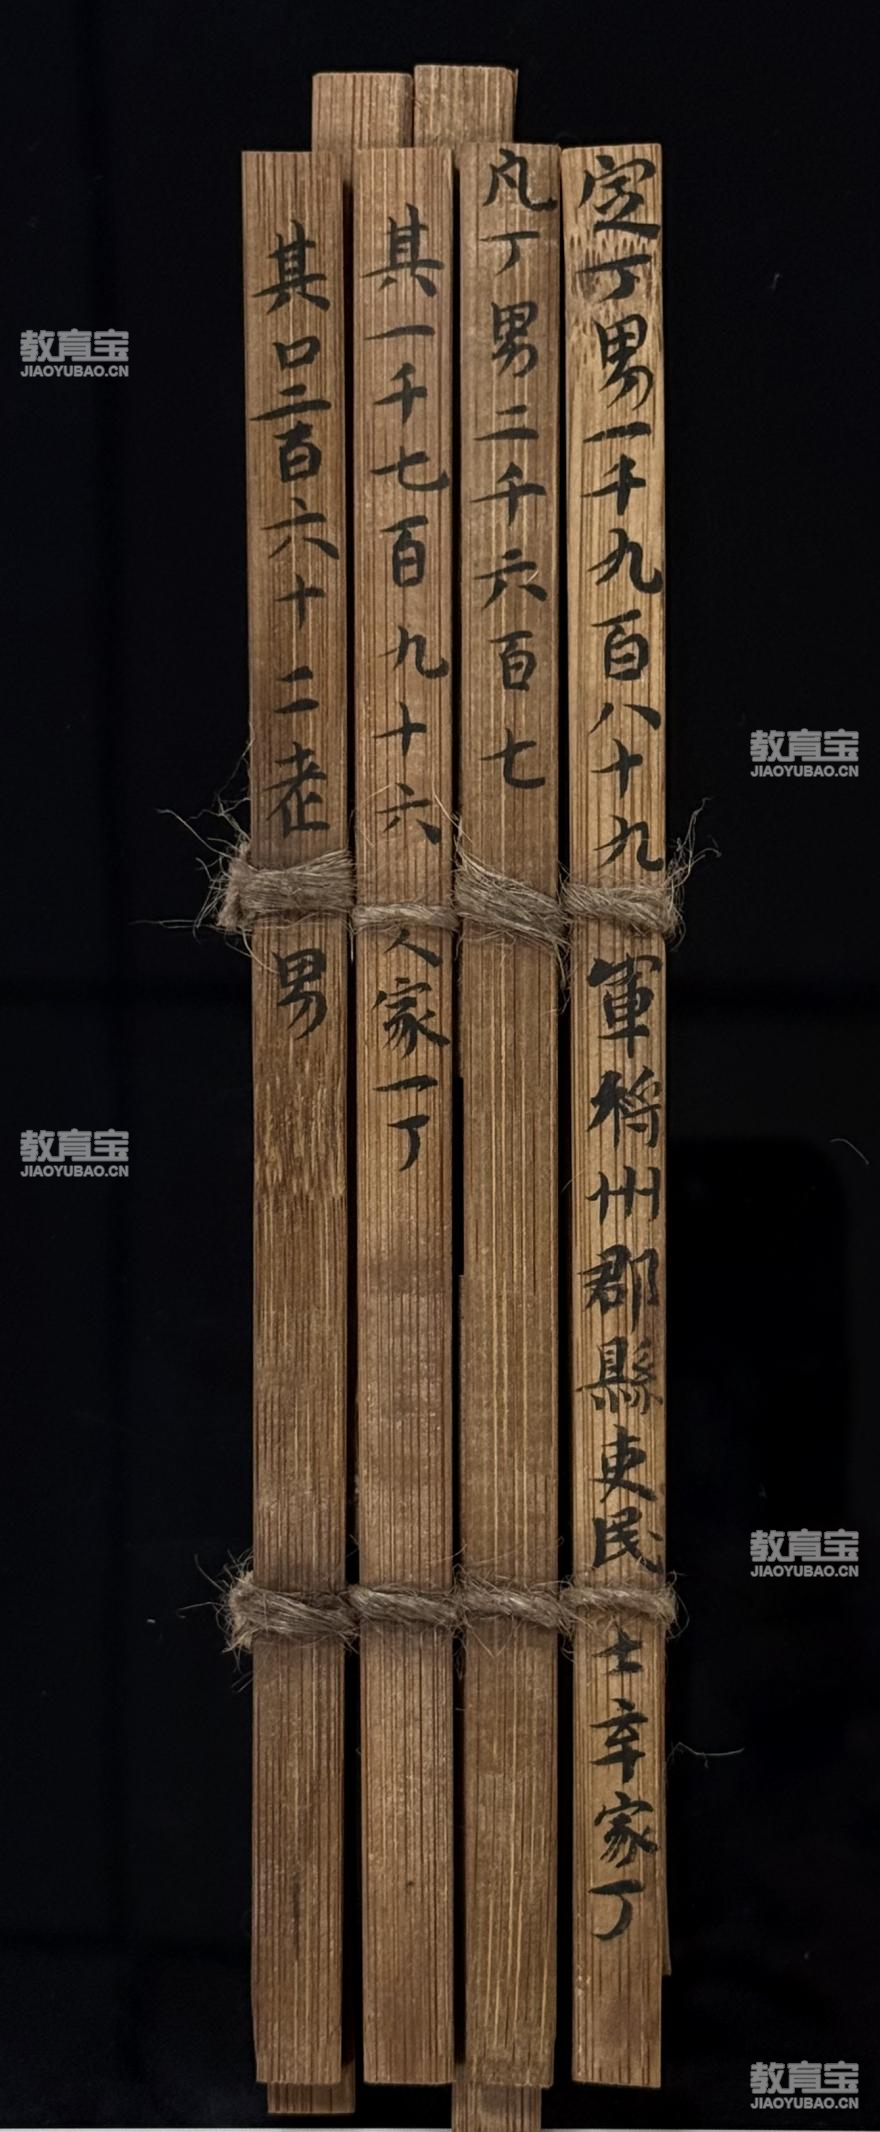 定丁男一千九百八十九軍將州郡縣吏民士卒家丁
凡丁男二千六百七
其一千七百九十六人家一丁
其口二百六十二老男
教育宝
JIAOYUBAO.CN
教育宝
JIAOYUBAO.CN
教育宝
JIAOYUBAO.CN
教育宝
JIAOYUBAO.CN
教育宝
JIAOYUBAO.CN